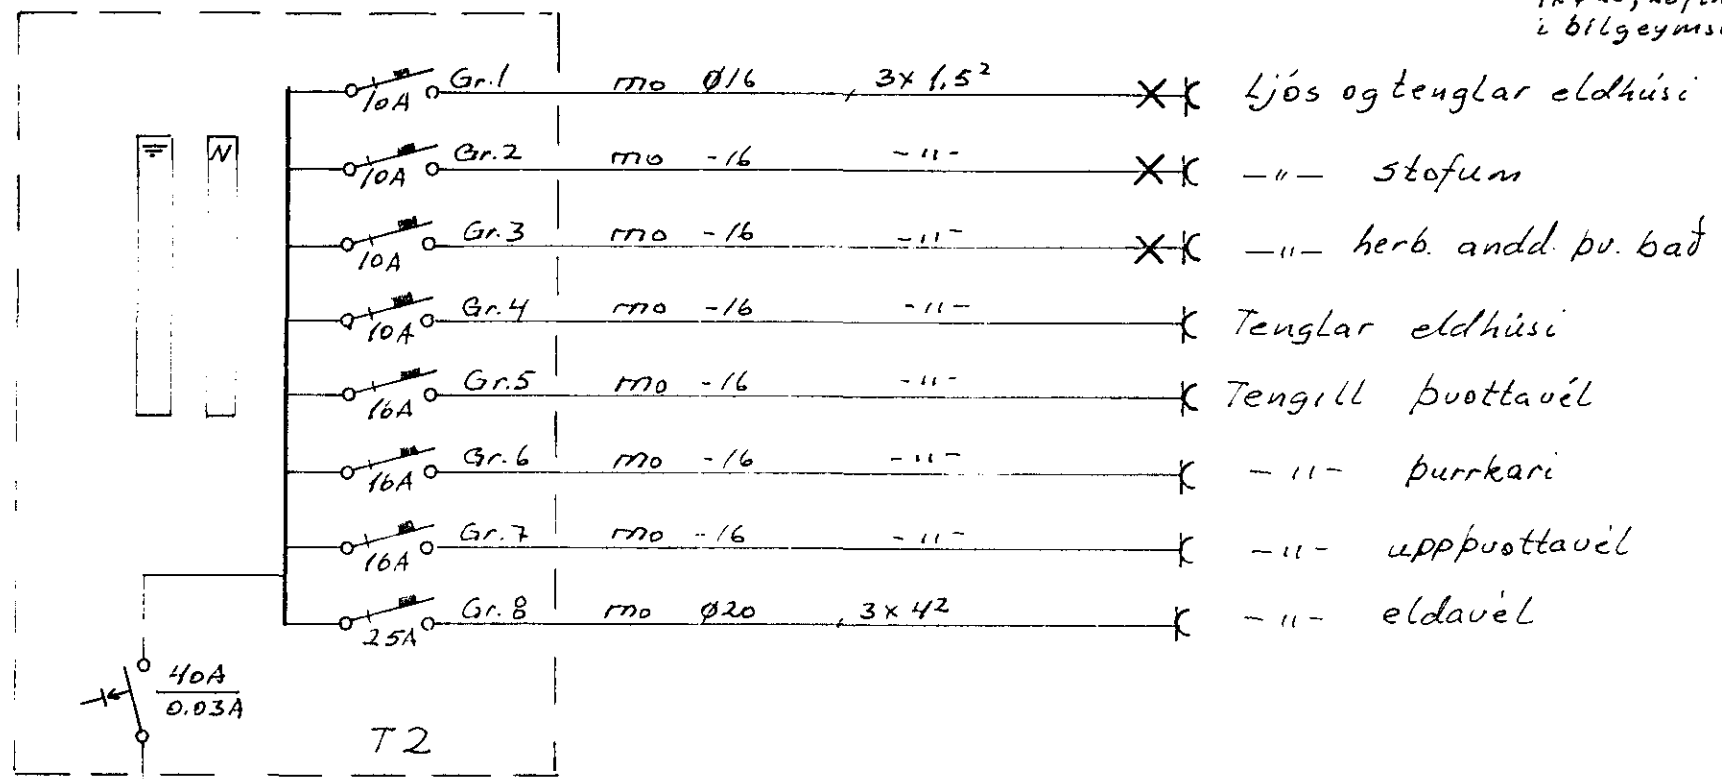 í bílgeyms
Gr.1 mo Ø16, 3x1,5² Ljós og tenglar eldhúsi
10A
N
Gr.2 mo -16 -"- -"- stofum
10A
Gr.3 mo -16 -"- -"- herb. andd. þv. bað
10A
Gr.4 mo -16 -"- Tenglar eldhúsi
10A
Gr.5 mo -16 -"- Tengill þvottavél
16A
Gr.6 mo -16 -"- -"- þurrkari
16A
Gr.7 mo -16 -"- -"- uppþvottavél
16A
Gr.8 mo Ø20, 3x4² -"- eldavél
25A
40A
0.03A
T2